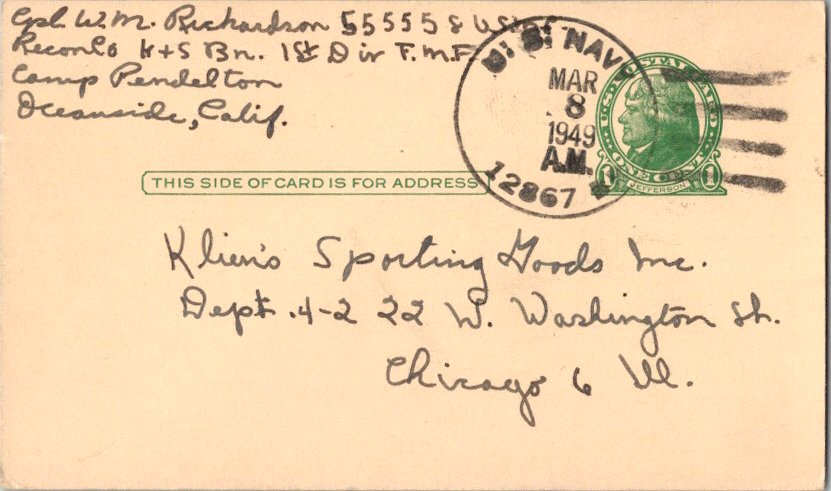 Cpl. W. M. Richardson 555558 USMC
Recon Co H+S Bn. 1st Div F.M.F.
Camp Pendelton
Oceanside, Calif.
U.S. NAVY
MAR
8
1949
A.M.
12867
U.S. POSTAL CARD
ONE CENT
1 JEFFERSON 1
THIS SIDE OF CARD IS FOR ADDRESS
Klien's Sporting Goods Inc.
Dept. 4-2 22 W. Washington St.
Chicago 6 Ill.